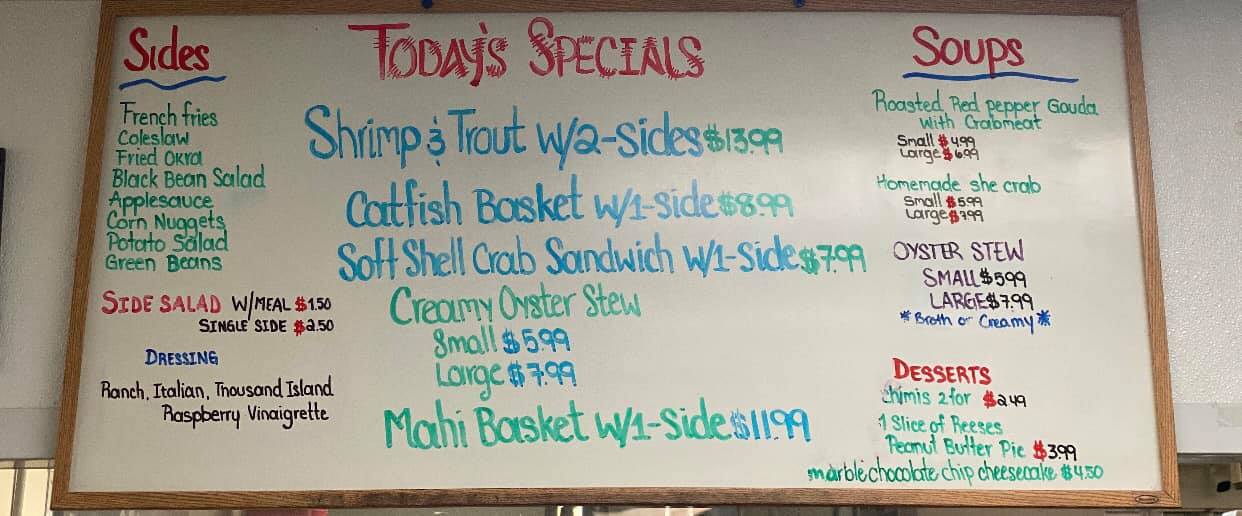 Sides
French fries
Coleslaw
Fried Okra
Black Bean Salad
Applesauce
Corn Nuggets
Potato Salad
Green Beans
SIDE SALAD W/MEAL $1.50
SINGLE SIDE $2.50
DRESSING
Ranch, Italian, Thousand Island
Raspberry Vinaigrette
TODAY'S SPECIALS
Shrimp & Trout w/2-Sides $13.99
Catfish Basket w/1-side $8.99
Soft Shell Crab Sandwich w/1-Side $7.99
Creamy Oyster Stew
Small $5.99
Large $7.99
Mahi Basket w/1-Side $11.99
SOUPS
Roasted Red pepper Gouda
with Crabmeat
Small $4.99
Large $6.99
Homemade she crab
Small $5.99
Large $7.99
OYSTER STEW
SMALL $5.99
LARGE $7.99
*Broth or Creamy*
DESSERTS
chimis 2 for $2.49
1 Slice of Reeses
Peanut Butter Pie $3.99
marble chocolate chip cheesecake $4.50